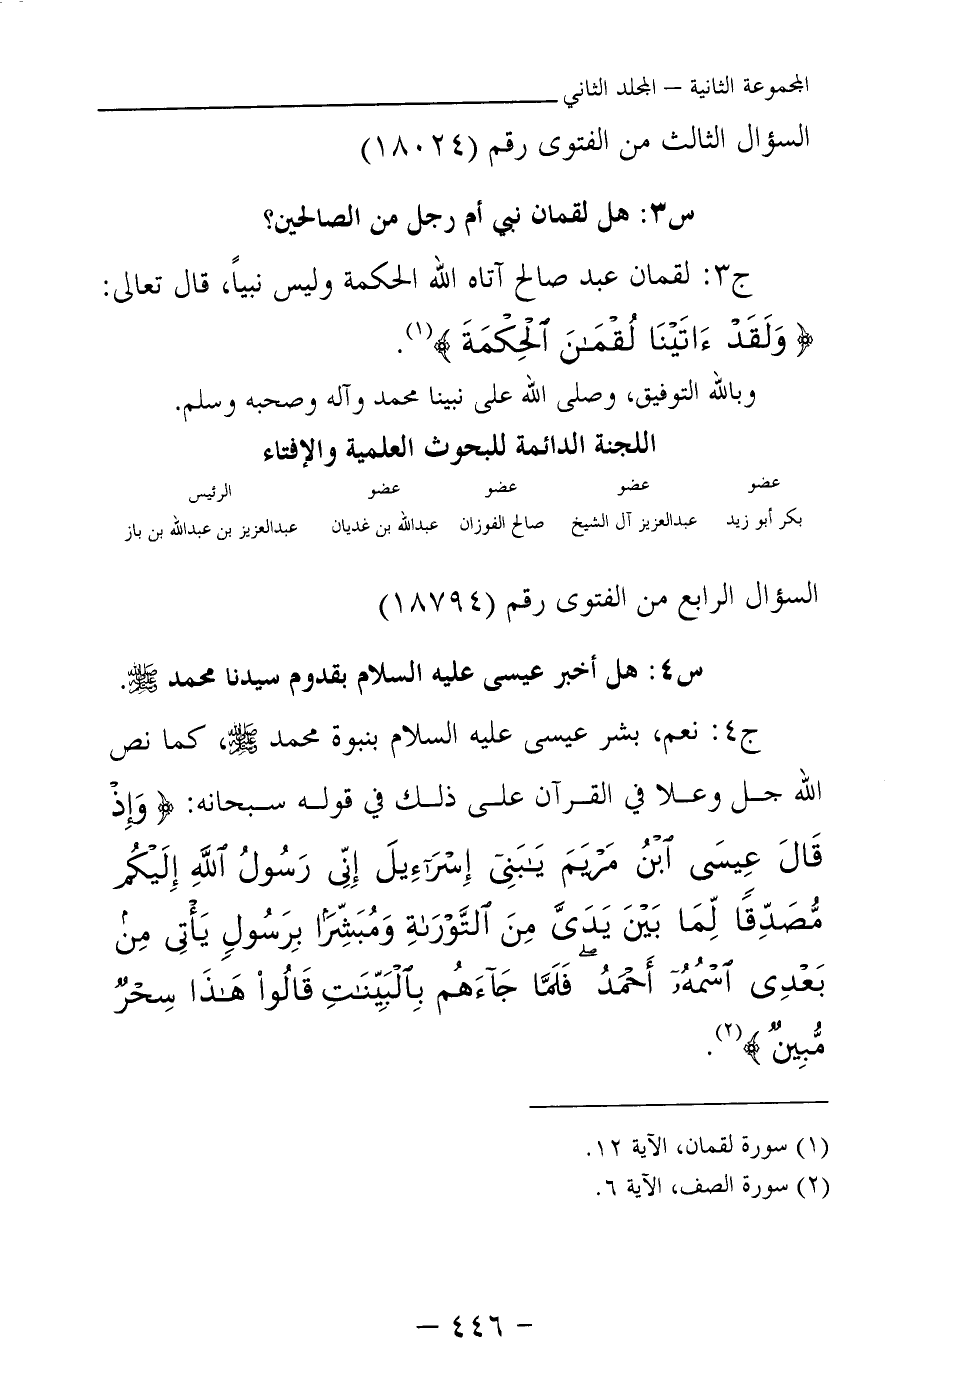 المجموعة الثانية – المجلد الثاني
السؤال الثالث من الفتوى رقم (١٨٠٢٤)
س٣: هل لقمان نبي أم رجل من الصالحين؟
ج٣: لقمان عبد صالح آتاه الله الحكمة وليس نبياً، قال تعالى:
﴿ وَلَقَدْ ءَاتَيْنَا لُقْمَـٰنَ ٱلْحِكْمَةَ ﴾(١).
وبالله التوفيق، وصلى الله على نبينا محمد وآله وصحبه وسلم.
اللجنة الدائمة للبحوث العلمية والإفتاء
عضو عضو عضو عضو الرئيس
بكر أبو زيد عبدالعزيز آل الشيخ صالح الفوزان عبدالله بن غديان عبدالعزيز بن عبدالله بن باز
السؤال الرابع من الفتوى رقم (١٨٧٩٤)
س٤: هل أخبر عيسى عليه السلام بقدوم سيدنا محمد ﷺ.
ج٤: نعم، بشر عيسى عليه السلام بنبوة محمد ﷺ، كما نص
الله جل وعلا في القرآن على ذلك في قوله سبحانه: ﴿ وَإِذْ
قَالَ عِيسَى ٱبْنُ مَرْيَمَ يَـٰبَنِىٓ إِسْرَٰٓءِيلَ إِنِّى رَسُولُ ٱللَّهِ إِلَيْكُم
مُّصَدِّقًا لِّمَا بَيْنَ يَدَىَّ مِنَ ٱلتَّوْرَىٰةِ وَمُبَشِّرًۢا بِرَسُولٍ يَأْتِى مِنۢ
بَعْدِى ٱسْمُهُۥٓ أَحْمَدُ ۖ فَلَمَّا جَآءَهُم بِٱلْبَيِّنَـٰتِ قَالُوا۟ هَـٰذَا سِحْرٌ
مُّبِينٌ ﴾(٢).
(١) سورة لقمان، الآية ١٢.
(٢) سورة الصف، الآية ٦.
– ٤٤٦ –